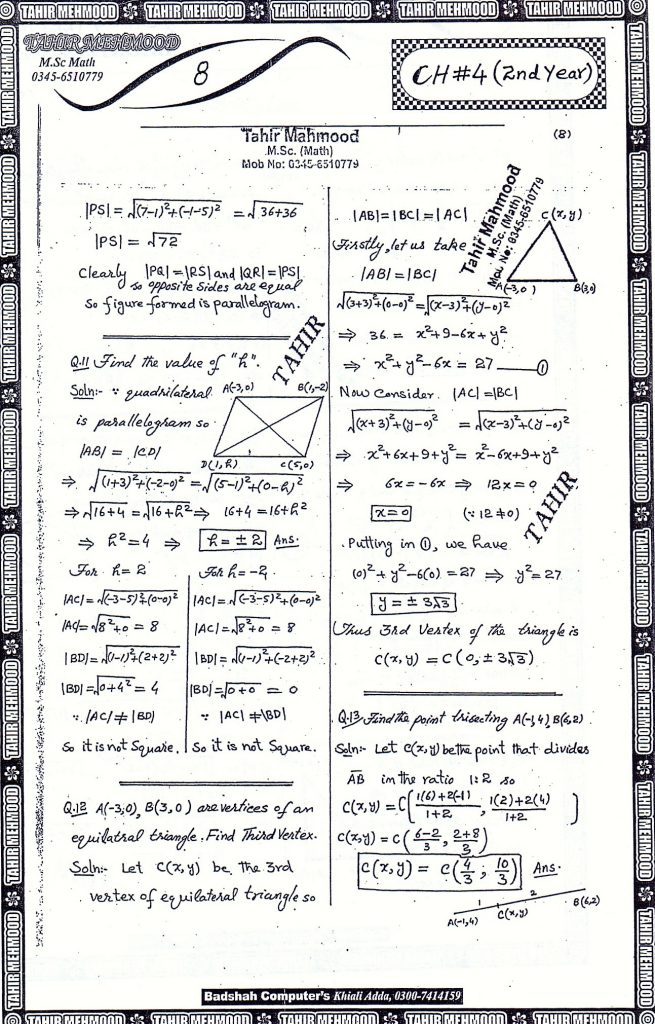 TAHIR MEHMOOD TAHIR MEHMOOD TAHIR MEHMOOD TAHIR MEHMOOD TAHIR MEHMOOD
TAHIR MEHMOOD
M.Sc Math
0345-6510779
8
CH#4 (2nd Year)
Tahir Mahmood
M.Sc. (Math)
Mob No: 0345-6510779
(8)
|PS| = √(7-1)²+(-1-5)² = √36+36
|PS| = √72
Clearly |PQ| = |RS| and |QR| = |PS|
so opposite sides are equal
So figure formed is parallelogram.
Q.11 Find the value of "h".
TAHIR
Soln:- ∵ quadrilateral
A(-3,0) B(1,-2)
is parallelogram so
|AB| = |CD|
D(1,h) C(5,0)
⇒ √(1+3)²+(-2-0)² = √(5-1)²+(0-h)²
⇒ √16+4 = √16+h² ⇒ 16+4 = 16+h²
⇒ h² = 4 ⇒ h = ± 2 Ans.
For h = 2
|AC| = √(-3-5)²+(0-0)²
|AC| = √8²+0 = 8
|BD| = √(1-1)²+(2+2)²
|BD| = √0+4² = 4
∵ |AC| ≠ |BD|
So it is not Square.
For h = -2
|AC| = √(-3-5)²+(0-0)²
|AC| = √8²+0 = 8
|BD| = √(1-1)²+(-2+2)²
|BD| = √0+0 = 0
∵ |AC| ≠ |BD|
So it is not Square.
Q.12 A(-3,0), B(3,0) are vertices of an
equilatral triangle. Find Third Vertex.
Soln:- Let C(x,y) be the 3rd
vertex of equilateral triangle so
|AB| = |BC| = |AC|
Tahir Mahmood
M.Sc. (Math)
Mob No: 0345-6510779
C(x,y)
Firstly, let us take
|AB| = |BC|
A(-3,0) B(3,0)
√(3+3)²+(0-0)² = √(x-3)²+(y-0)²
⇒ 36 = x²+9-6x+y²
⇒ x²+y²-6x = 27 ——①
Now Consider |AC| = |BC|
√(x+3)²+(y-0)² = √(x-3)²+(y-0)²
⇒ x²+6x+9+y² = x²-6x+9+y²
⇒ 6x = -6x ⇒ 12x = 0
x = 0 (∵ 12 ≠ 0)
TAHIR
Putting in ①, we have
(0)²+y²-6(0) = 27 ⇒ y² = 27
y = ± 3√3
Thus 3rd Vertex of the triangle is
C(x,y) = C(0, ± 3√3)
Q.13 Find the point trisecting A(-1,4), B(6,2)
Soln:- Let C(x,y) be the point that divides
AB in the ratio 1:2 so
C(x,y) = C(1(6)+2(-1)/1+2, 1(2)+2(4)/1+2)
C(x,y) = C(6-2/3, 2+8/3)
C(x,y) = C(4/3, 10/3) Ans.
1 2
A(-1,4) C(x,y) B(6,2)
Badshah Computer's Khiali Adda, 0300-7414159
TAHIR MEHMOOD TAHIR MEHMOOD TAHIR MEHMOOD TAHIR MEHMOOD TAHIR MEHMOOD